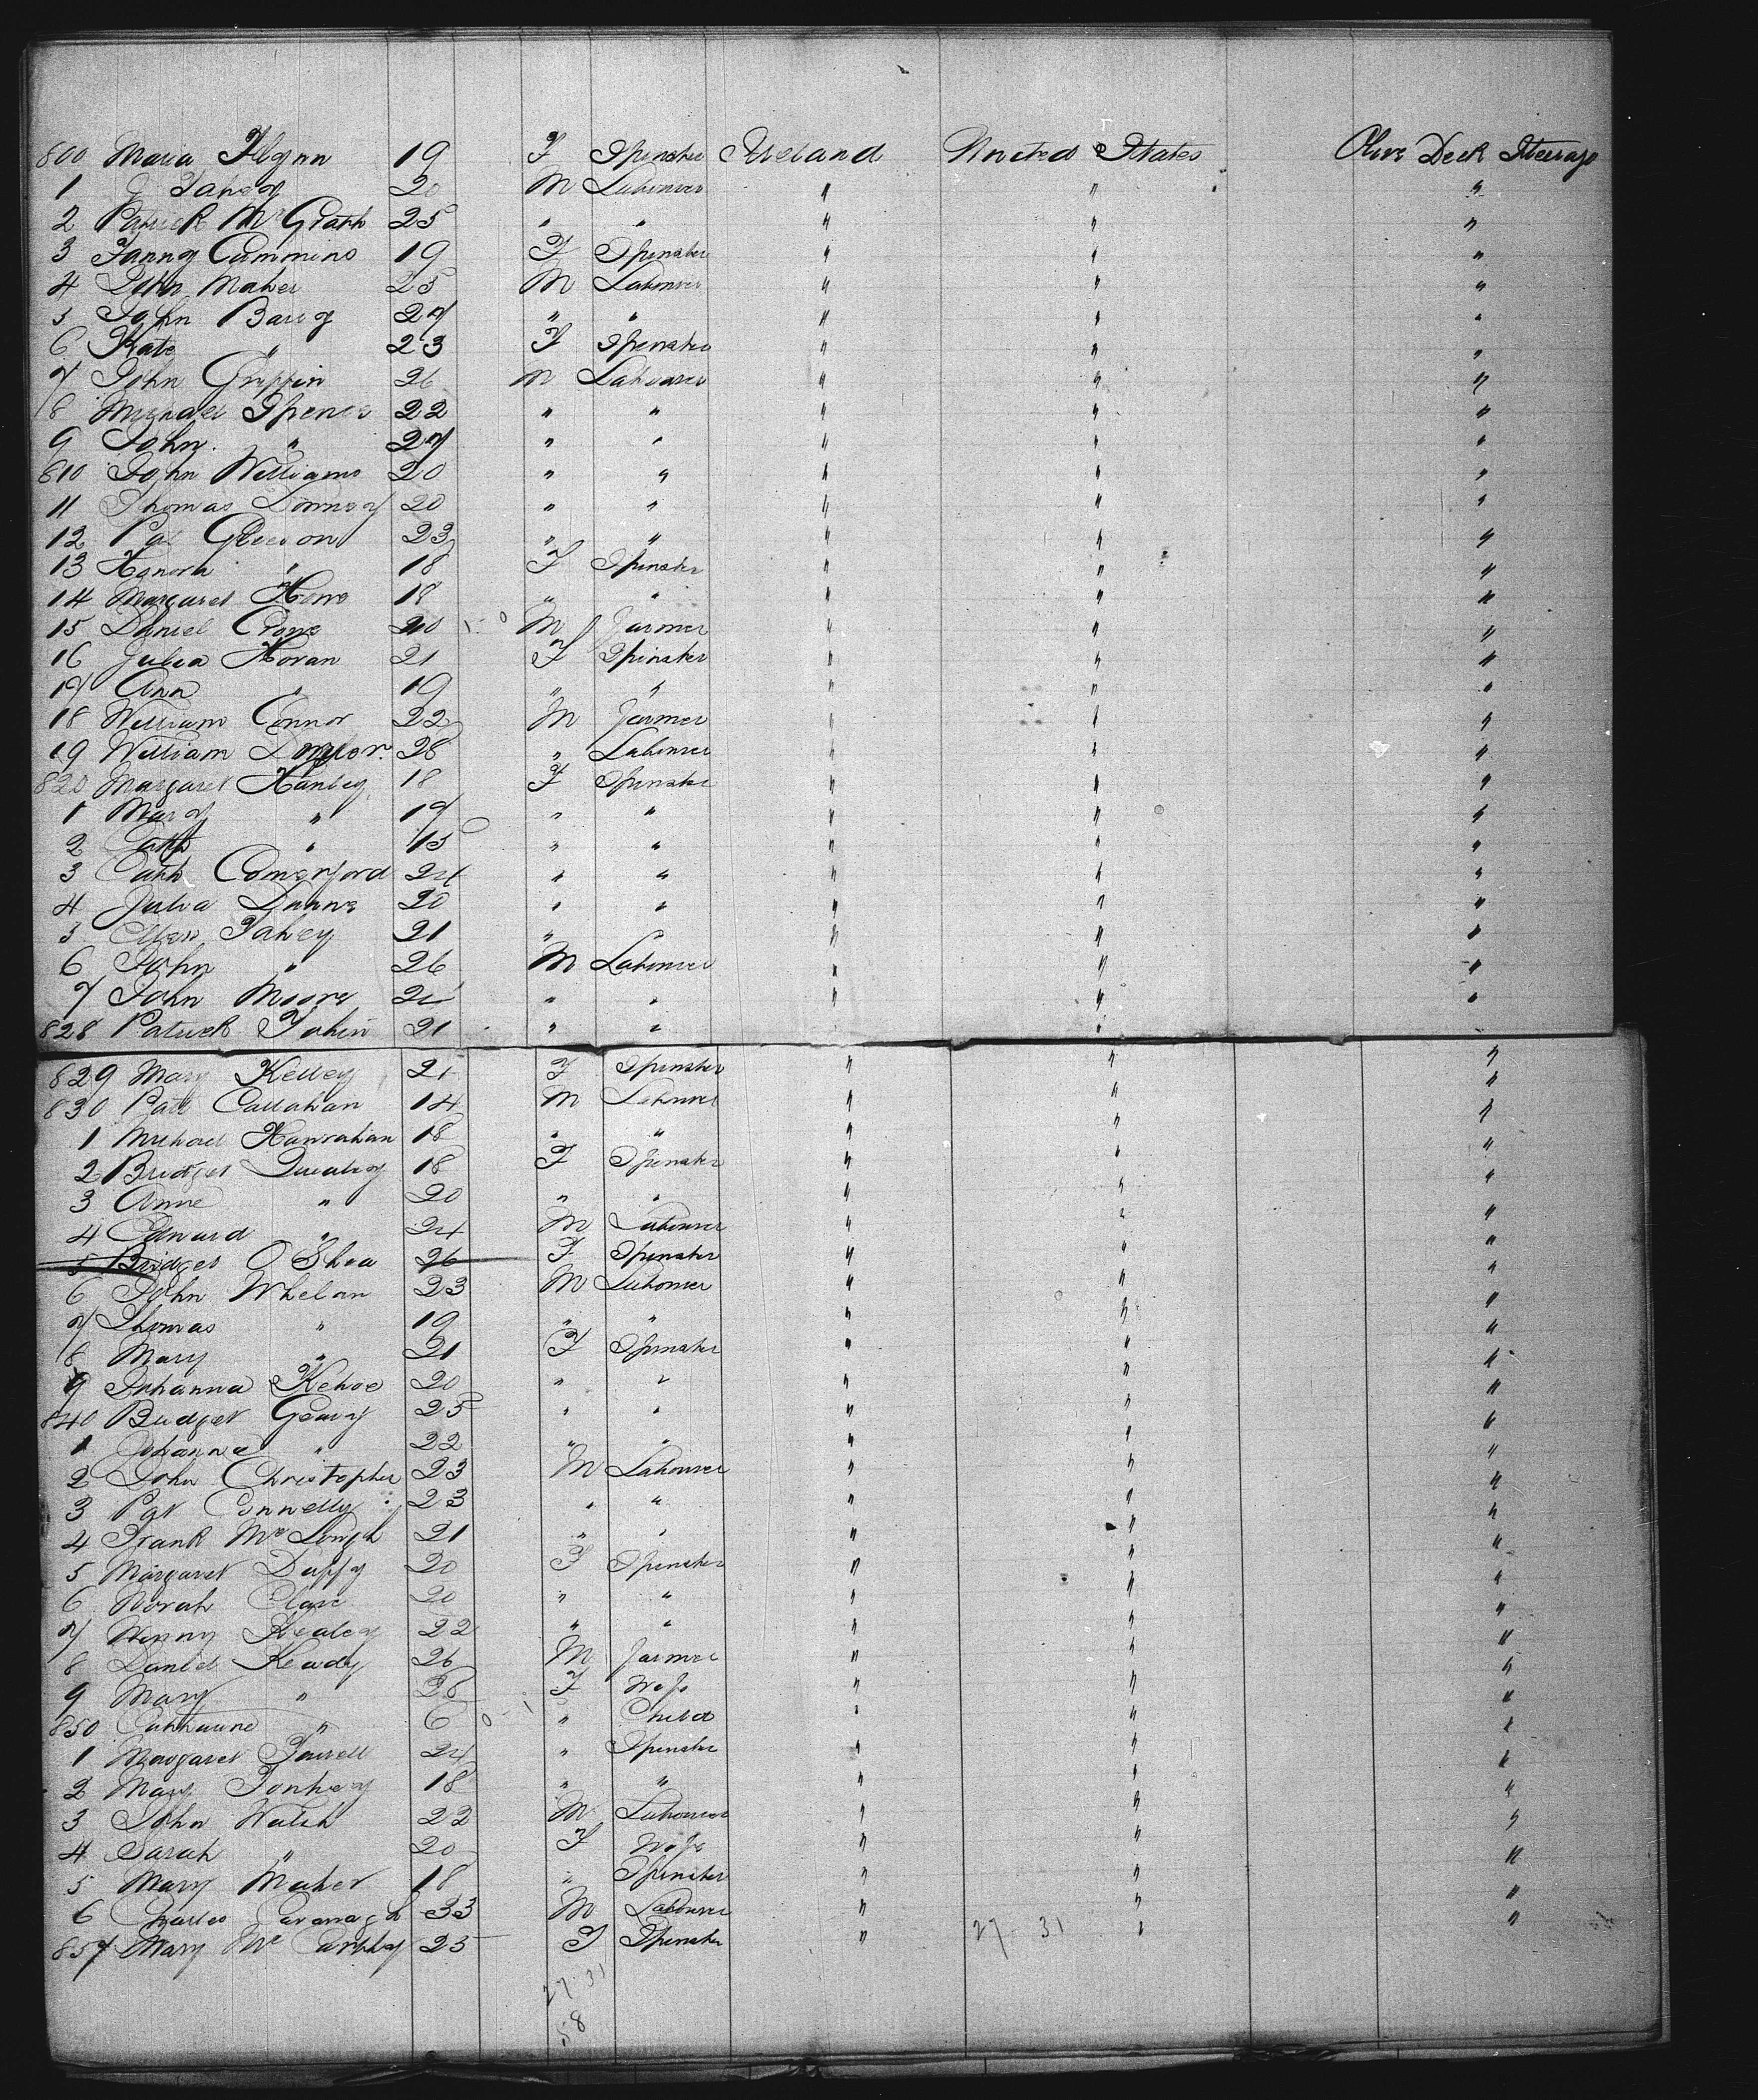 800 Maria Flynn 19 F Spinster Ireland United States Olive Deck Steerage
1 J Fahey 20 M Labourer " " "
2 Patrick McGrath 25 " " " " "
3 Fanny Cummins 19 F Spinster " " "
4 John Maher 25 M Labourer " " "
5 John Barry 27 " " " " "
6 Kate " 23 F Spinster " " "
7 John Griffin 26 M Labourer " " "
8 Michael Spence 22 " " " " "
9 John " 27 " " " " "
810 John Williams 20 " " " " "
11 Thomas Downey 20 " " " " "
12 Pat Gleeson 23 " " " " "
13 Hanora " 18 F Spinster " " "
14 Margaret 18 " " " " "
15 Daniel Crowe 20 M Farmer " " "
16 Julia Horan 21 F Spinster " " "
17 Ann " 19 " " " " "
18 William Connor 22 M Farmer " " "
19 William 28 " Labourer " " "
820 Margaret Hanley 18 F Spinster " " "
1 Mary " 19 " " " " "
2 Cath " 15 " " " " "
3 Cath Comerford 24 " " " " "
4 Julia Dunne 20 " " " " "
5 Ellen Fahey 21 " " " " "
6 John " 26 M Labourer " " "
7 John Moore " " " " "
828 Patrick Tobin 21 " " " "
829 Mary Kelley 21 F Spinster " " "
830 Patt Callahan 14 M Labourer " " "
1 Michael Hanrahan 18 " " " " "
2 Bridget Quealey 18 F Spinster " " "
3 Anne " 20 " " " " "
4 Edward " 24 M Labourer " " "
5 Bridget O'Shea 26 F Spinster " " "
6 John Whelan 23 M Labourer " " "
7 Thomas " 19 " " " " "
8 Mary " 21 F Spinster " " "
9 Johanna Kehoe 20 " " " " "
840 Bridget Geary 25 " " " " "
1 Johanna " 22 " " " " "
2 John Christopher 23 M Labourer " " "
3 Pat Connelly 23 " " " " "
4 Frank McLough 21 " " " " "
5 Margaret Duffy 20 F Spinster " " "
6 Norah Clare 20 " " " " "
7 Winny Healey 22 " " " " "
8 Daniel Keady 26 M Farmer " " "
9 Mary " 28 F Wife " " "
850 Catharine " 6 " Child " " "
1 Margaret Farrell 24 " Spinster " " "
2 Mary 18 " " " " "
3 John Walsh 22 M Labourer " " "
4 Sarah " 20 F Wife " " "
5 Mary Maher 18 " Spinster " " "
6 Charles Cavanagh 33 M Labourer " " "
857 Mary McCarthy 25 F Spinster " 27 31 " "
27 31
58